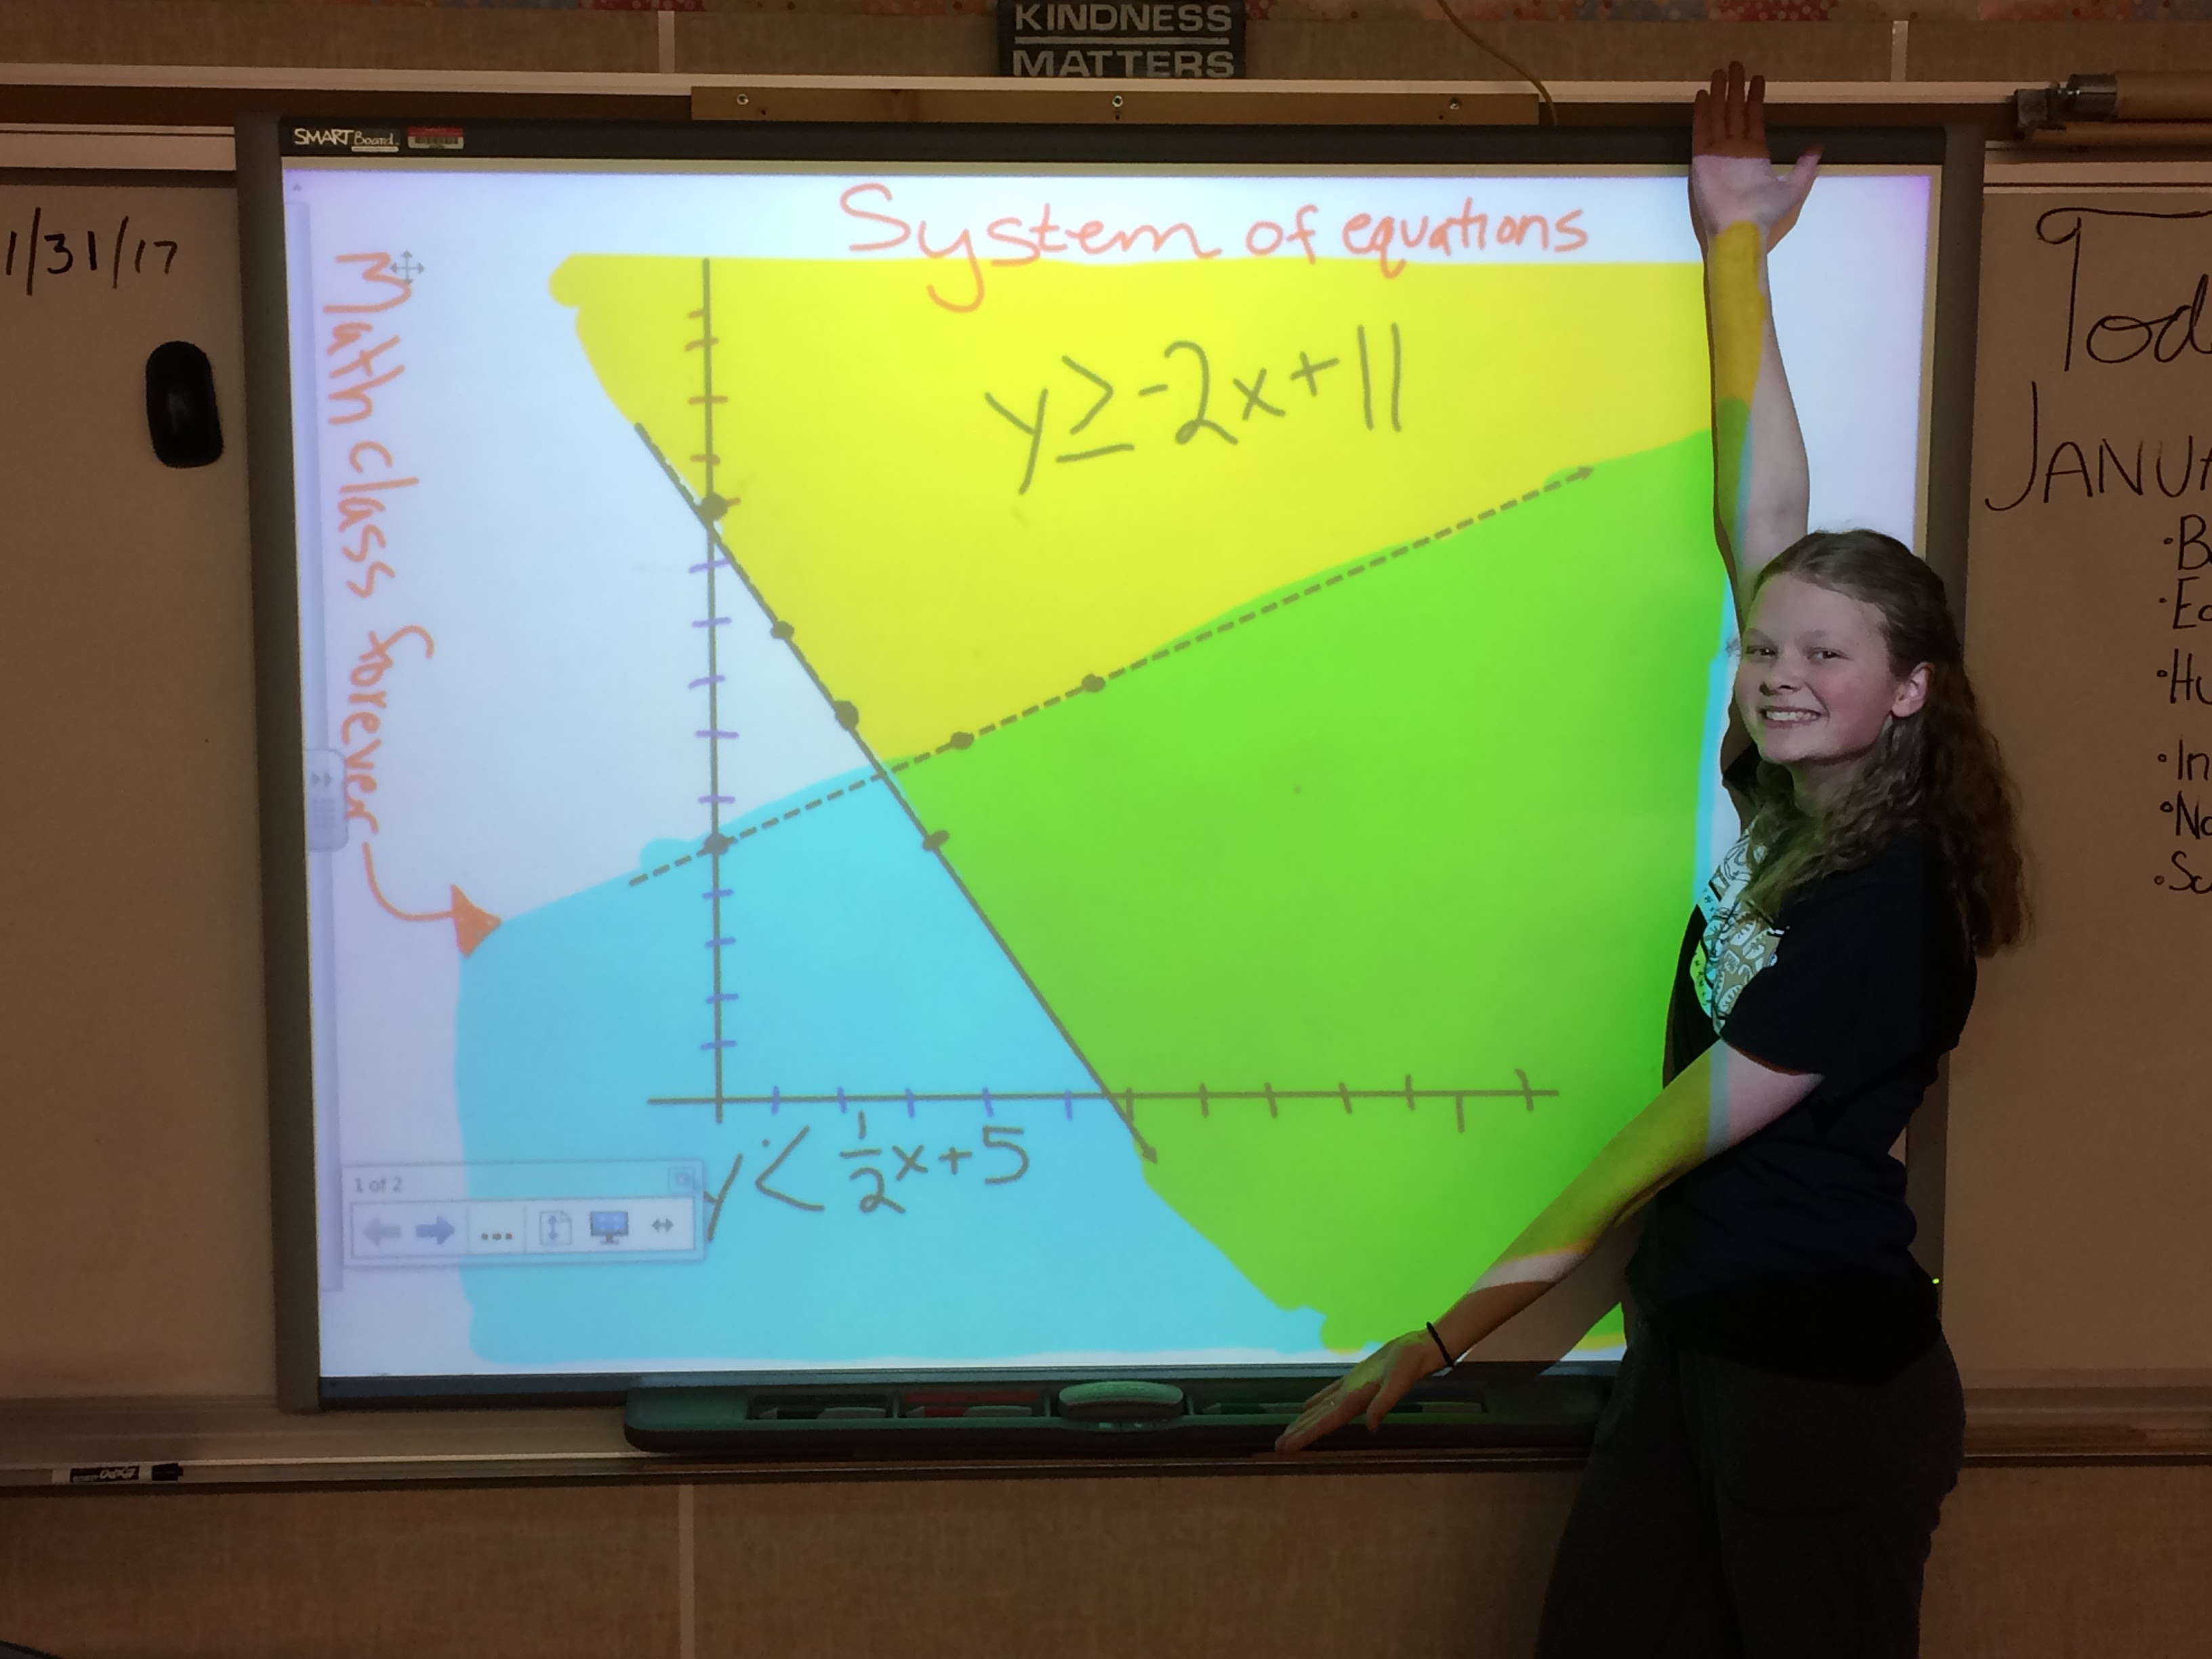 KINDNESS
MATTERS
SMART Board
1/31/17
System of equations
Math class forever
y≥-2x+11
y<1/2x+5
1 of 2
...
EXPO